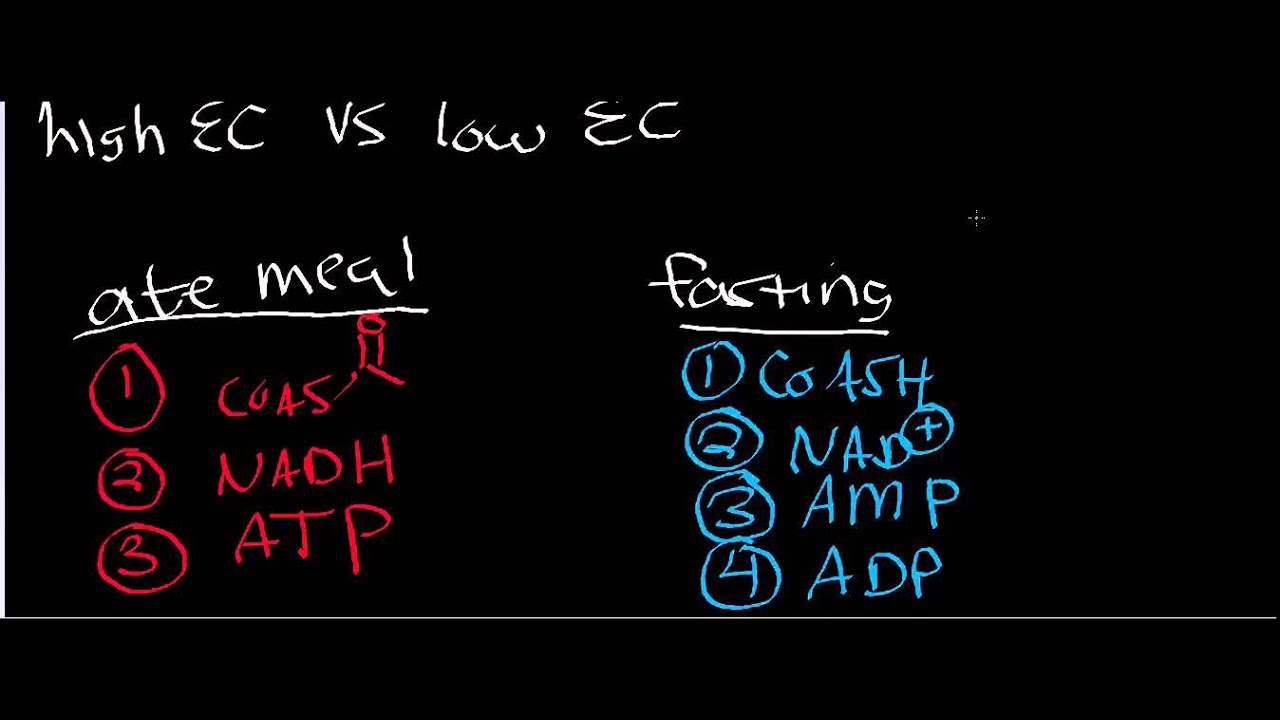 high EC VS low EC
ate meal
1 COAS O
2 NADH
3 ATP
fasting
1 COASH
2 NAD+
3 AMP
4 ADP